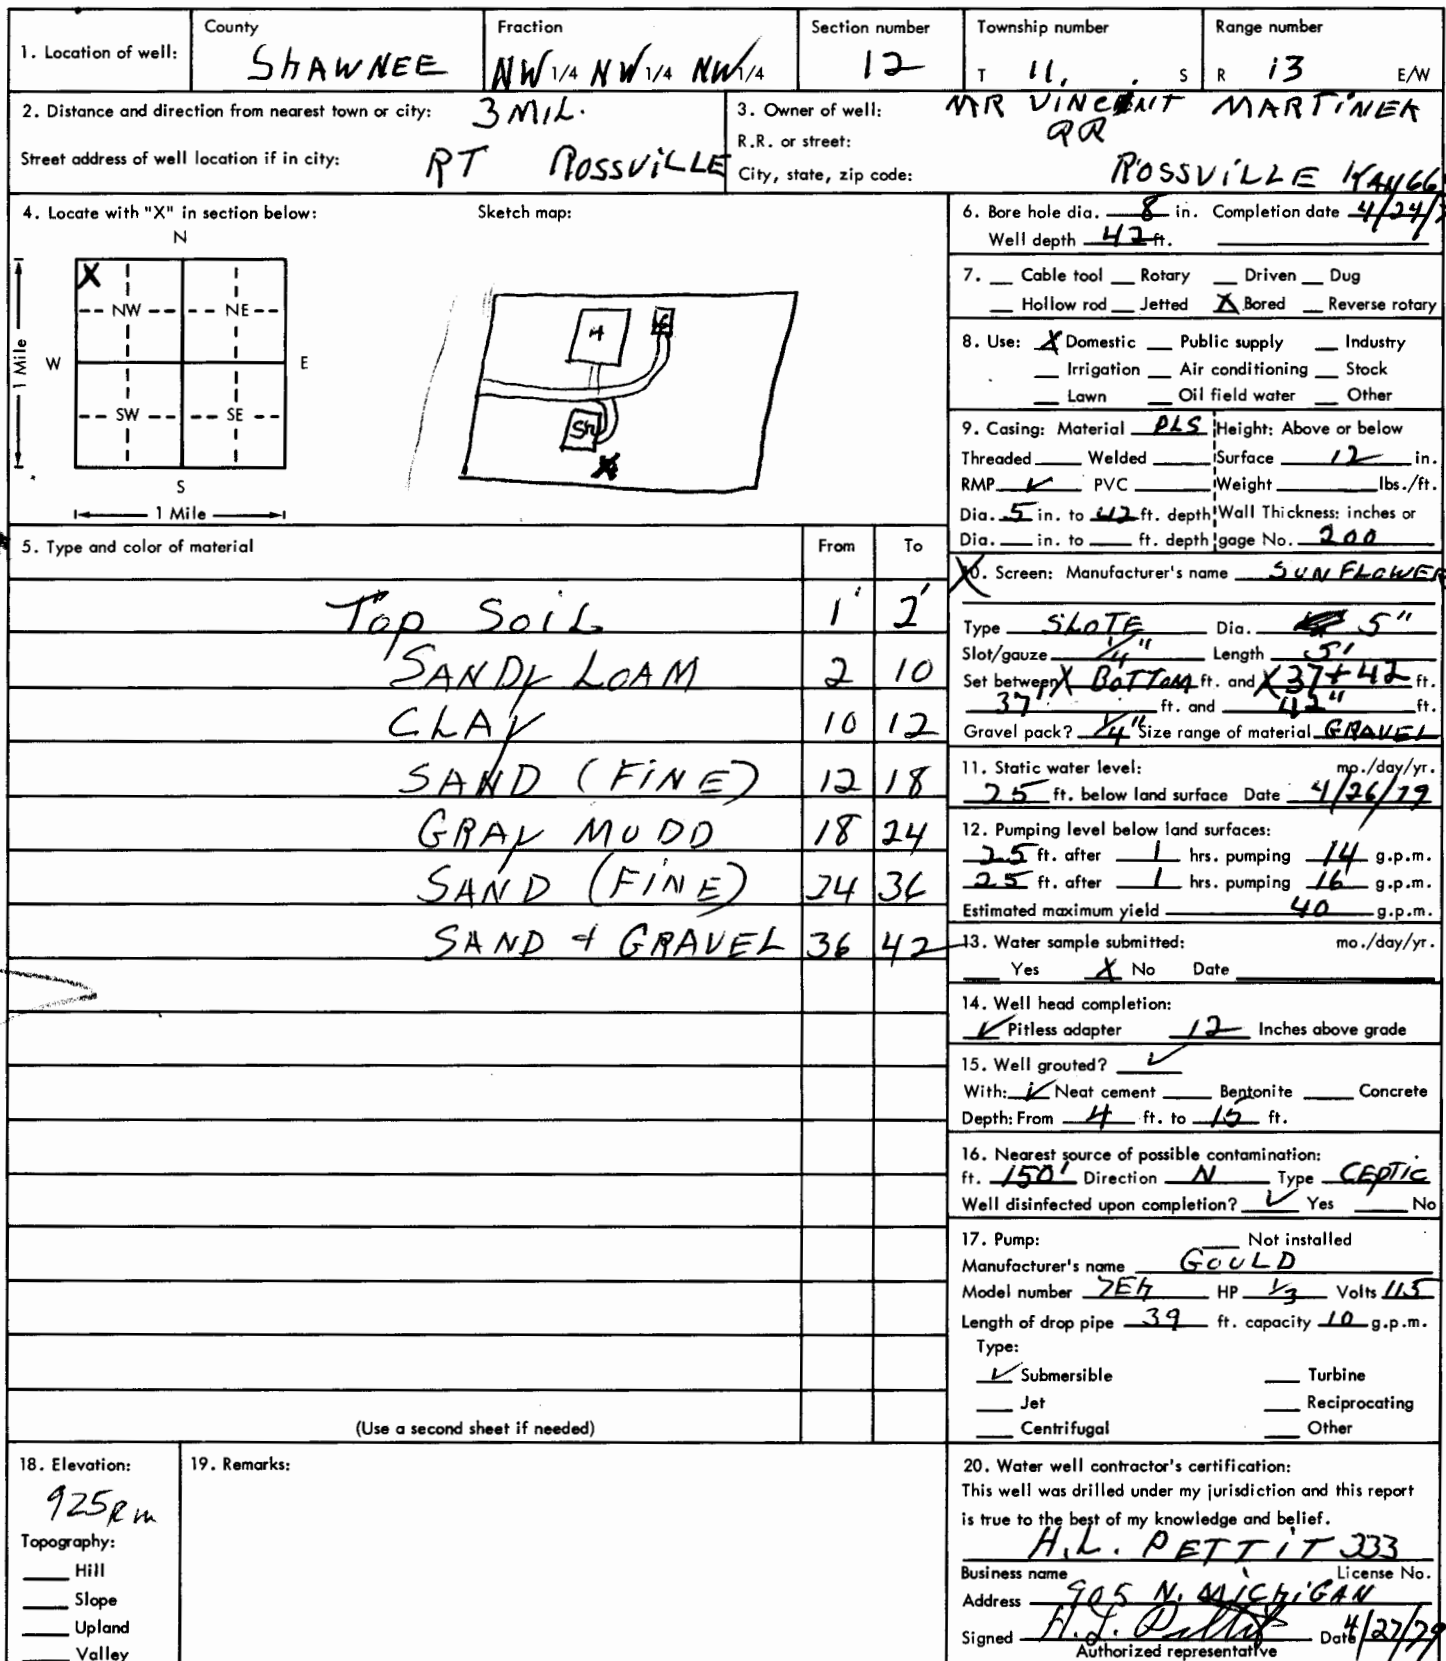 1. Location of well: County SHAWNEE Fraction NW 1/4 NW 1/4 NW 1/4 Section number 12 Township number T 11, S Range number R 13 E/W
2. Distance and direction from nearest town or city: 3 MIL.
Street address of well location if in city: RT ROSSVILLE
3. Owner of well: MR VINCENT MARTINEK
R.R. or street: RR
City, state, zip code: ROSSVILLE KAN 66
4. Locate with "X" in section below:
Sketch map:
N
X
NW NE
W E
1 Mile
SW SE
S
1 Mile
H
Sh
X
5. Type and color of material From To
Top SOIL 1' 2'
SANDY LOAM 2 10
CLAY 10 12
SAND (FINE) 12 18
GRAY MUDD 18 24
SAND (FINE) 24 36
SAND + GRAVEL 36 42
(Use a second sheet if needed)
6. Bore hole dia. 8 in. Completion date 4/24/
Well depth 42 ft.
7. __ Cable tool __ Rotary __ Driven __ Dug
__ Hollow rod __ Jetted X Bored __ Reverse rotary
8. Use: X Domestic __ Public supply __ Industry
__ Irrigation __ Air conditioning __ Stock
__ Lawn __ Oil field water __ Other
9. Casing: Material PLS Height: Above or below
Threaded ___ Welded ___ Surface 12 in.
RMP ✓ PVC ___ Weight ___ lbs./ft.
Dia. 5 in. to 42 ft. depth Wall Thickness: inches or
Dia. __ in. to __ ft. depth gage No. 200
10. Screen: Manufacturer's name SUNFLOWER
Type SLOTE Dia. 5"
Slot/gauze 1/4" Length 5'
Set between X BOTTOM ft. and X 37 + 42 ft.
37" ft. and 42" ft.
Gravel pack? 1/4" Size range of material GRAVEL
11. Static water level: mo./day/yr.
25 ft. below land surface Date 4/26/79
12. Pumping level below land surfaces:
25 ft. after 1 hrs. pumping 14 g.p.m.
25 ft. after 1 hrs. pumping 16 g.p.m.
Estimated maximum yield 40 g.p.m.
13. Water sample submitted: mo./day/yr.
__ Yes X No Date
14. Well head completion:
✓ Pitless adapter 12 Inches above grade
15. Well grouted? ✓
With: ✓ Neat cement __ Bentonite __ Concrete
Depth: From 4 ft. to 15 ft.
16. Nearest source of possible contamination:
ft. 150' Direction N Type CEPTIC
Well disinfected upon completion? ✓ Yes __ No
17. Pump: __ Not installed
Manufacturer's name GOULD
Model number HP 1/3 Volts 115
Length of drop pipe 39 ft. capacity 10 g.p.m.
Type:
✓ Submersible __ Turbine
__ Jet __ Reciprocating
__ Centrifugal __ Other
18. Elevation:
925
Topography:
__ Hill
__ Slope
__ Upland
__ Valley
19. Remarks:
20. Water well contractor's certification:
This well was drilled under my jurisdiction and this report
is true to the best of my knowledge and belief.
H.L. PETTIT 333
Business name License No.
Address 905 N. MICHIGAN
Signed H.L. Pettit Date 4/27/79
Authorized representative